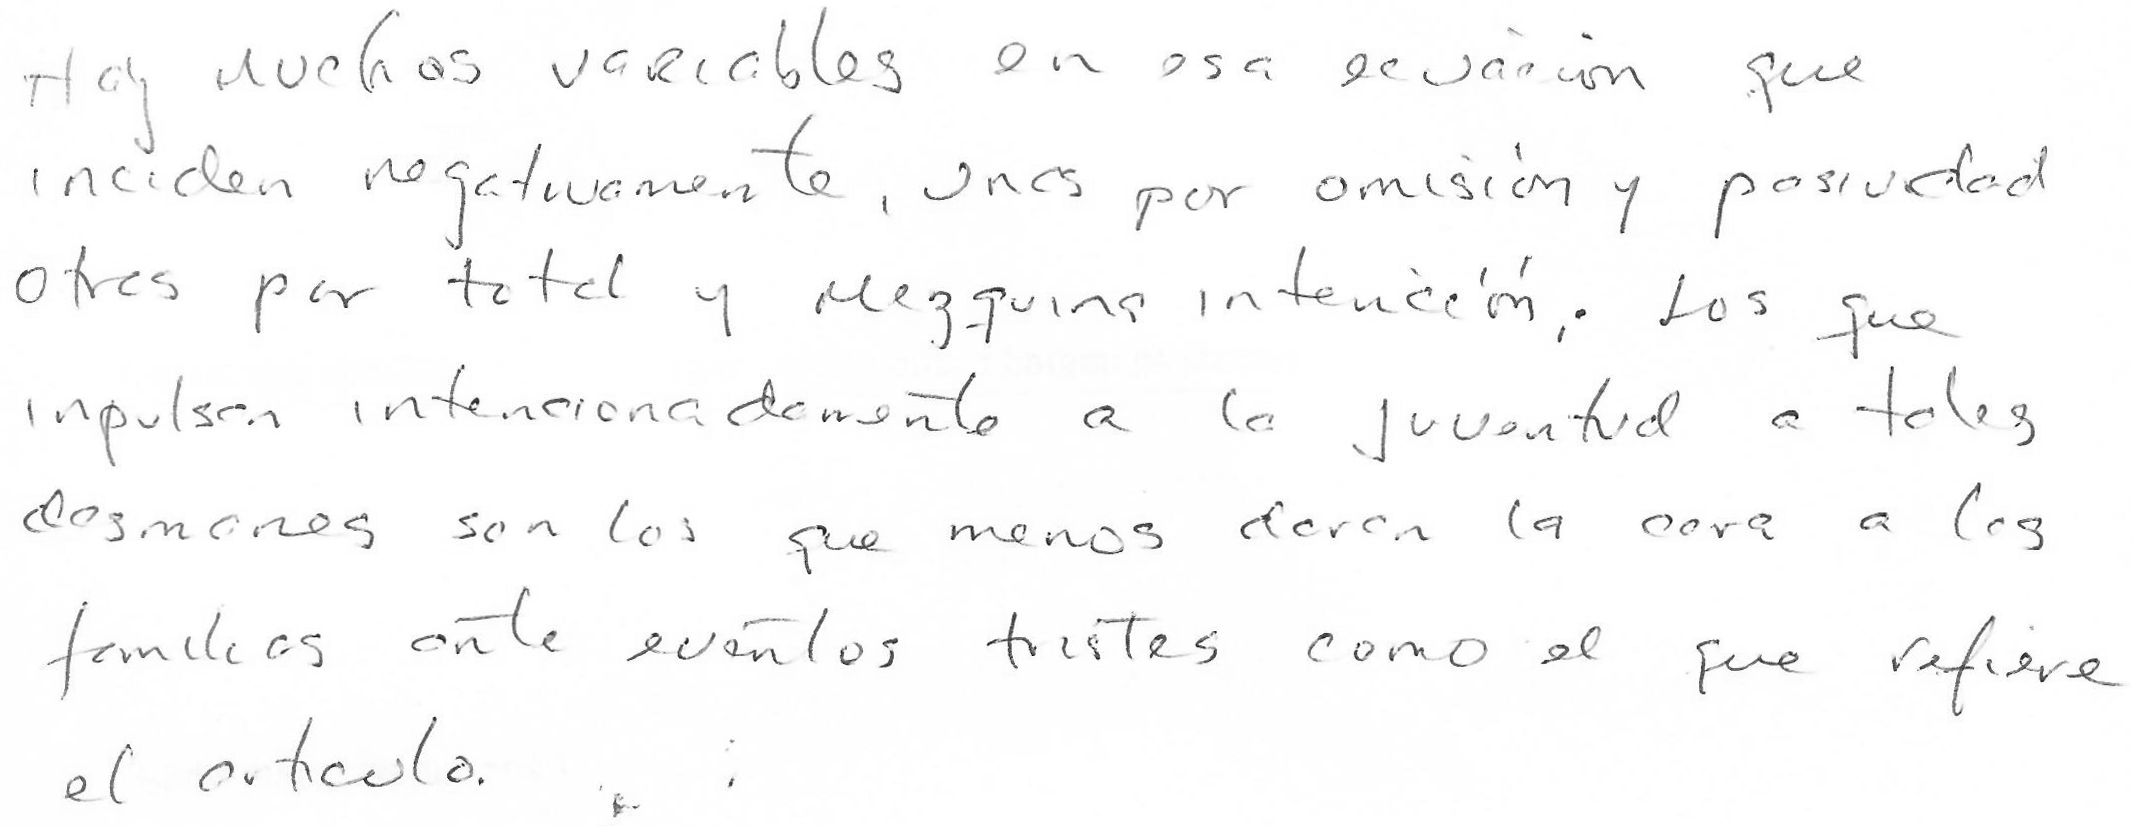 Hay muchos variables en esa ecuación que
inciden negativamente, unas por omisión y pasividad
otras por total y mezquina intención,. Los que
inpulsan intencionadamente a la juventud a tales
desmanes son los que menos daran la cara a las
familias ante eventos tristes como el que refiere
el articulo.